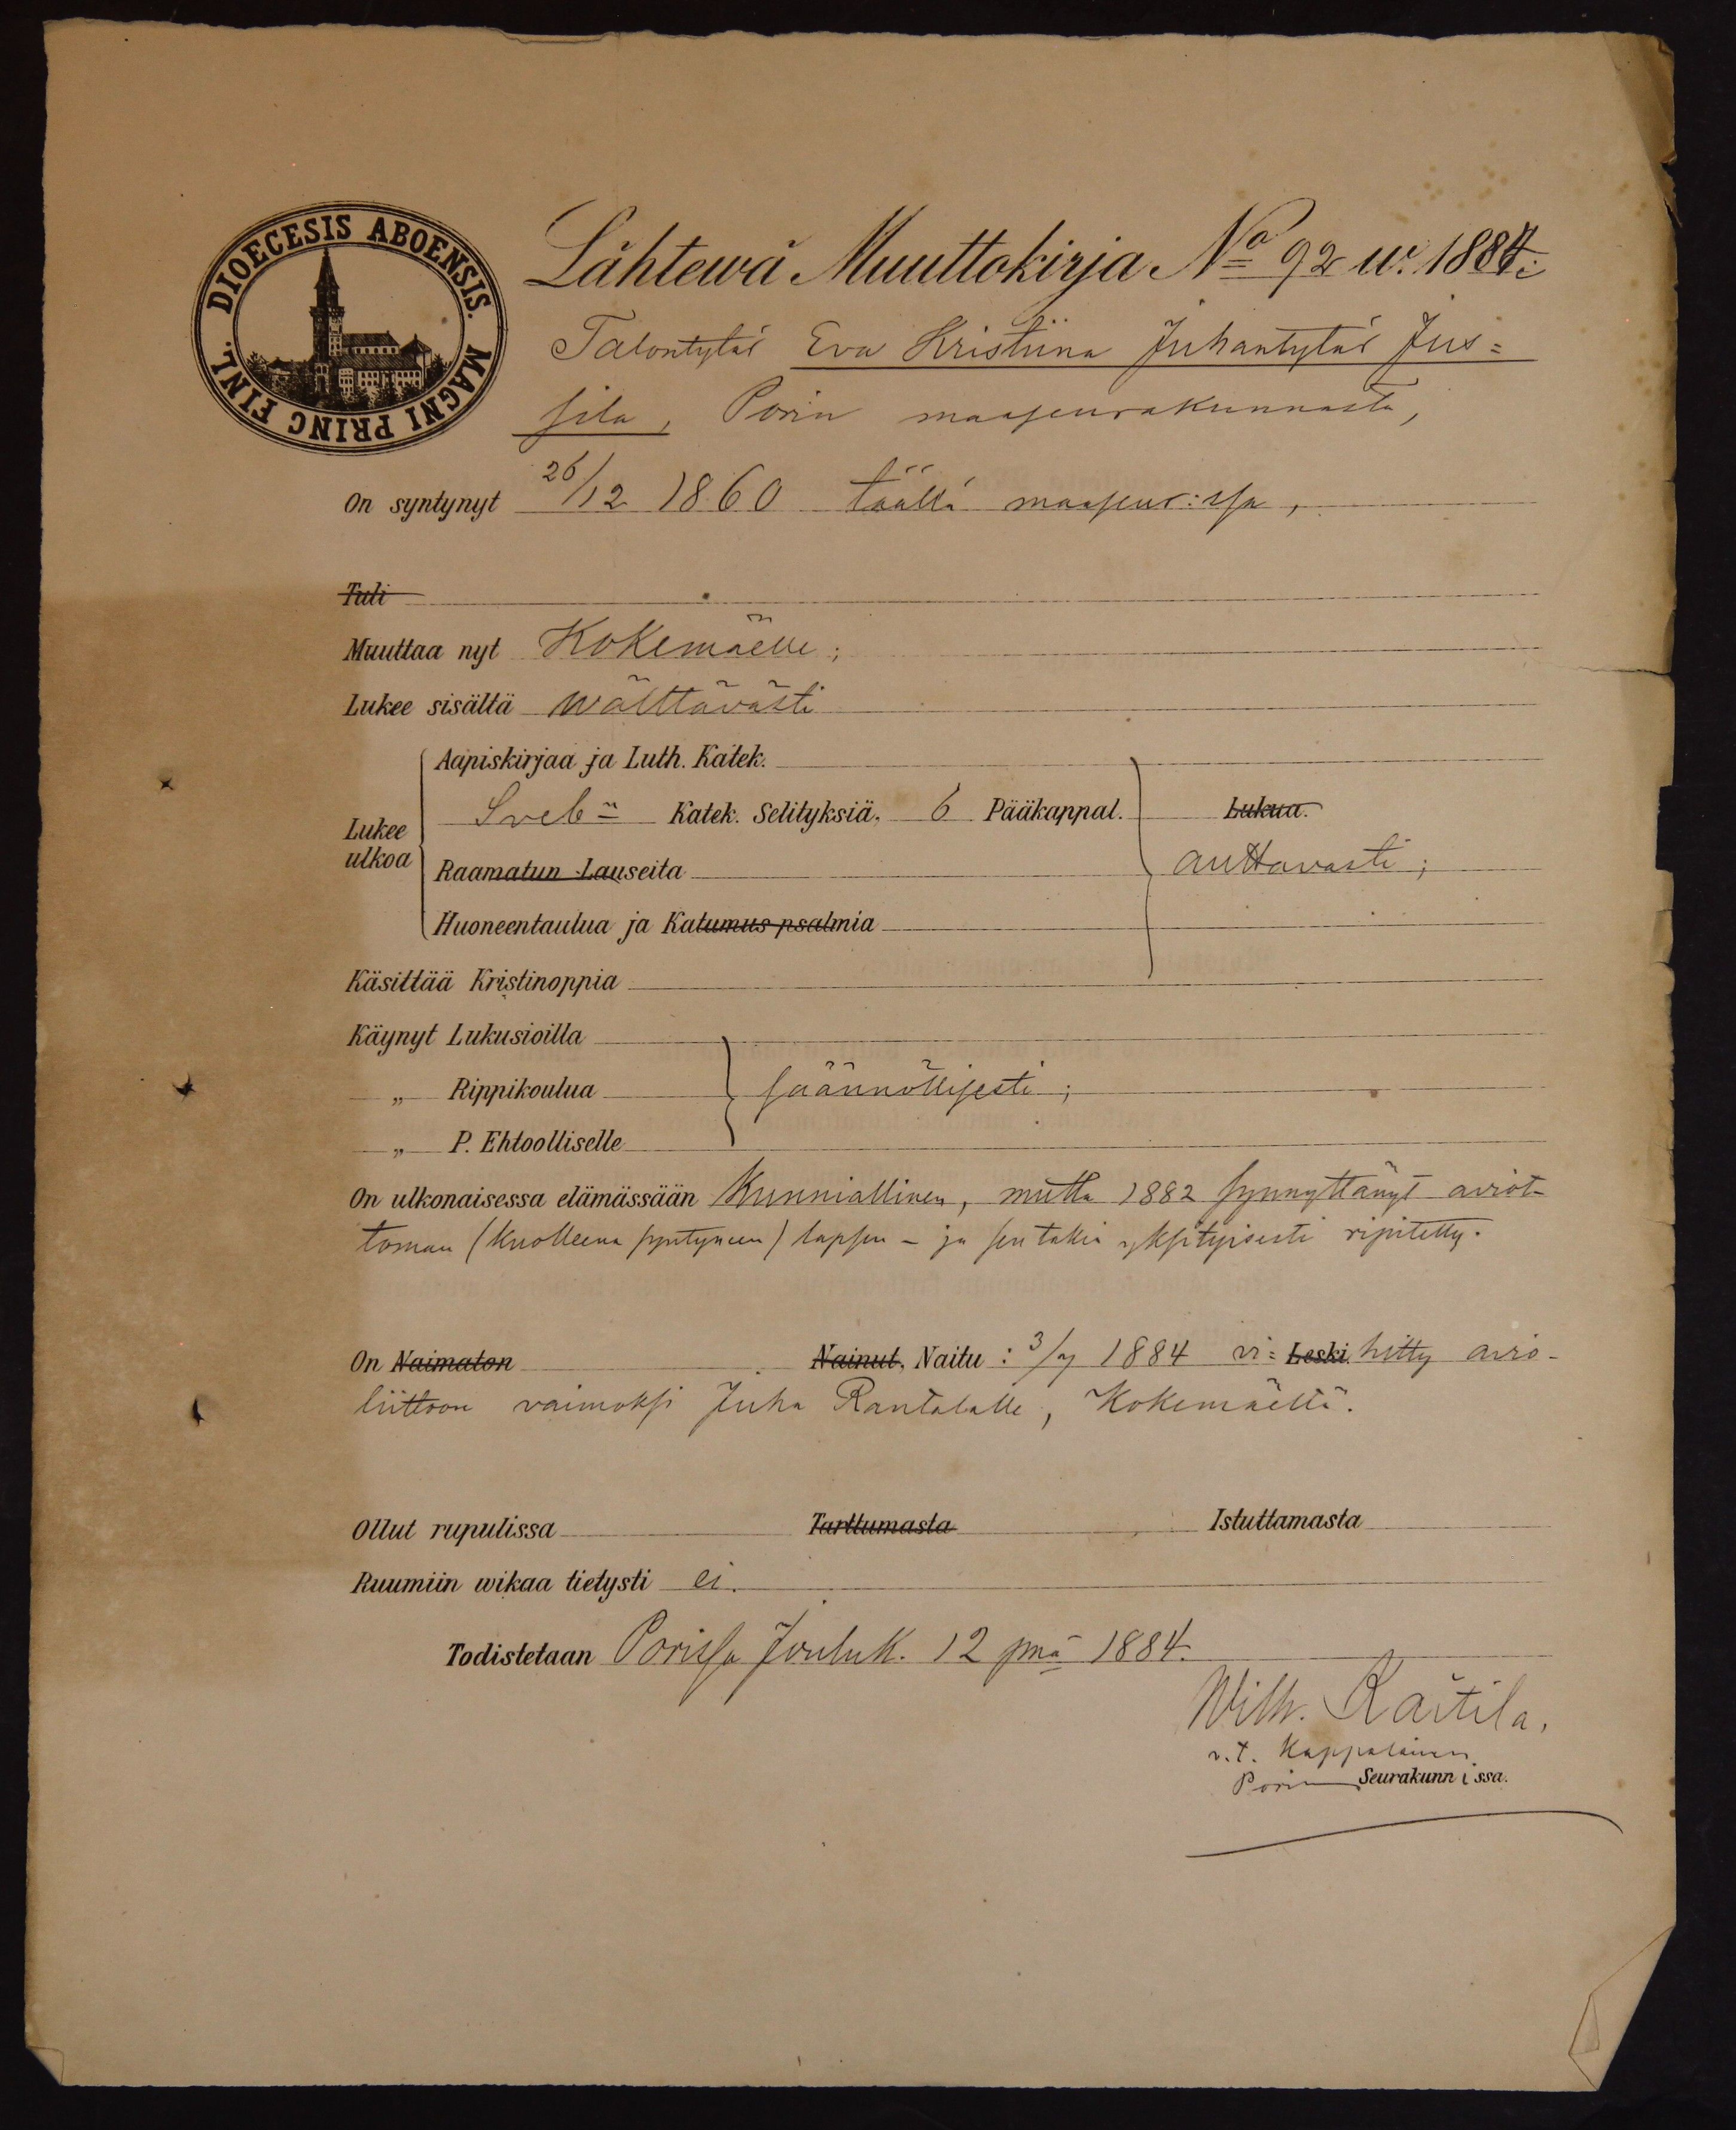 DIOECESIS ABOENSIS. MAGNI PRINC FINL.
Lähtewä Muuttokirja No 92 w. 1884:
Talontytär Eva Kristiina Juhantytär Jus=
sila, Porin maaseurakunnasta,
On syntynyt 26/12 1860 täällä maaseur:ssa,
Tuli
Muuttaa nyt Kokemäelle;
Lukee sisältä wälttävästi
Aapiskirjaa ja Luth. Katek.
Sveb:n Katek. Selityksiä, 6 Pääkappal. Lukua.
Lukee ulkoa
Raamatun Lauseita auttavasti;
Huoneentaulua ja Katumus psalmia
Käsittää Kristinoppia
Käynyt Lukusioilla
„ Rippikoulua säännöllisesti;
„ P. Ehtoolliselle
On ulkonaisessa elämässään Kunniallinen, mutta 1882 synnyttänyt aviot-
toman (kuolleena syntyneen) lapsen - ja sen takia yksityisesti ripitetty.
On Naimaton Nainut, Naitu: 3/7 1884 vi= Leski. hitty avio-
liittoon vaimoksi Juha Rantalalle, Kokemäeltä.
Ollut rupulissa Tarttumasta Istuttamasta
Ruumiin wikaa tietysti ei.
Todistetaan Porissa Jouluk. 12 pnä 1884.
Wilh. Kaitila,
v.t. Kappalainen
Porin Seurakunnissa.